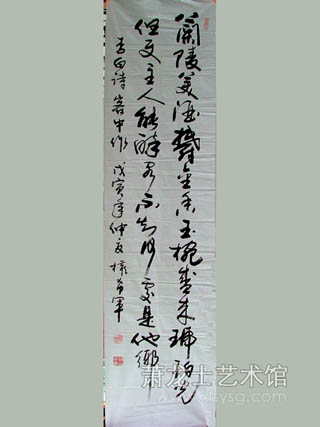 蘭陵美酒鬱金香玉椀盛来琥珀光
但使主人能醉客不知何處是他鄉
李白诗 客中作 戊寅年仲夏 權希軍
萧龙士艺术馆
www.xlsysg.com